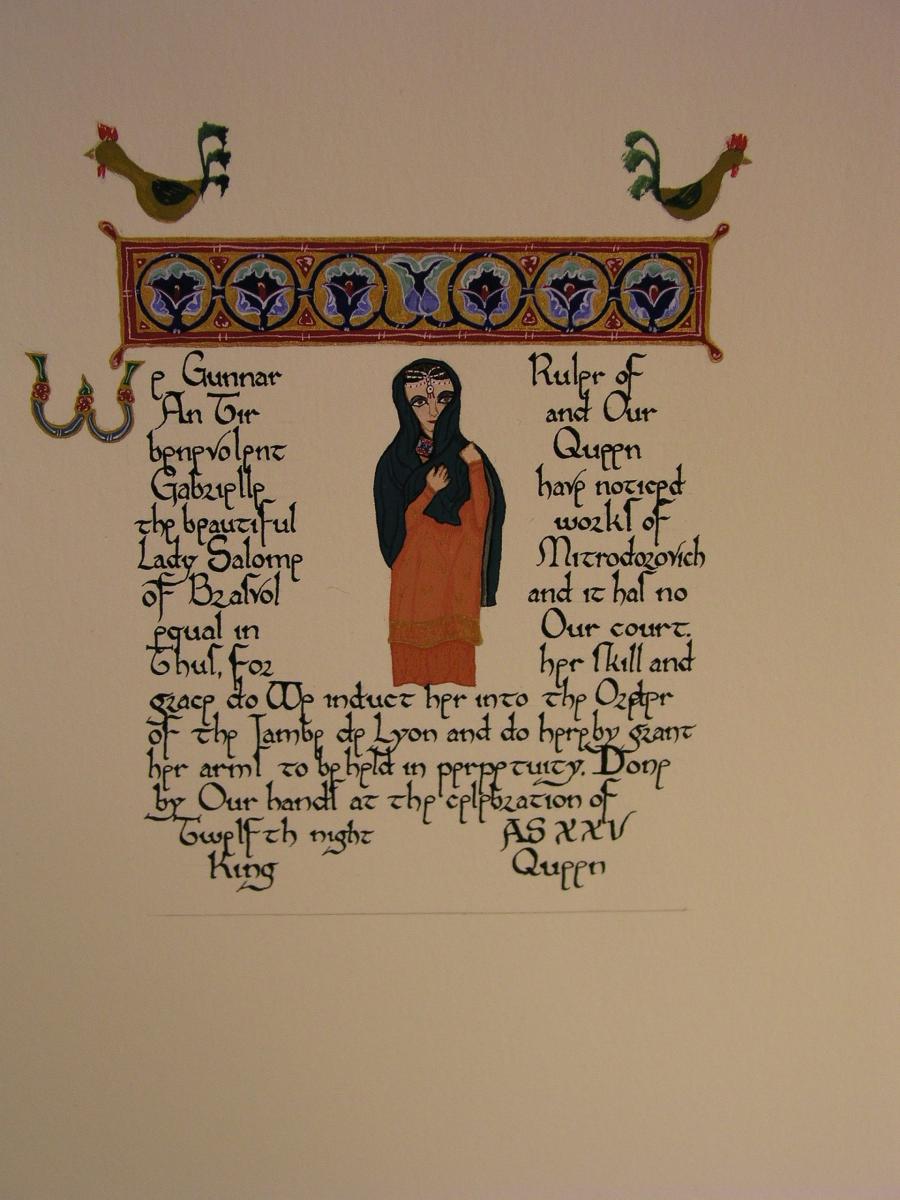 We Gunnar Ruler of
An Tir and Our
benevolent Queen
Gabrielle have noticed
the beautiful works of
Lady Salome Mitrodorovich
of Brasvol and it has no
equal in Our court.
Thus, for her skill and
grace do We induct her into the Order
of the Jambe de Lyon and do hereby grant
her arms to be held in perpetuity. Done
by Our hands at the celebration of
Twelfth night AS XXV
King Queen